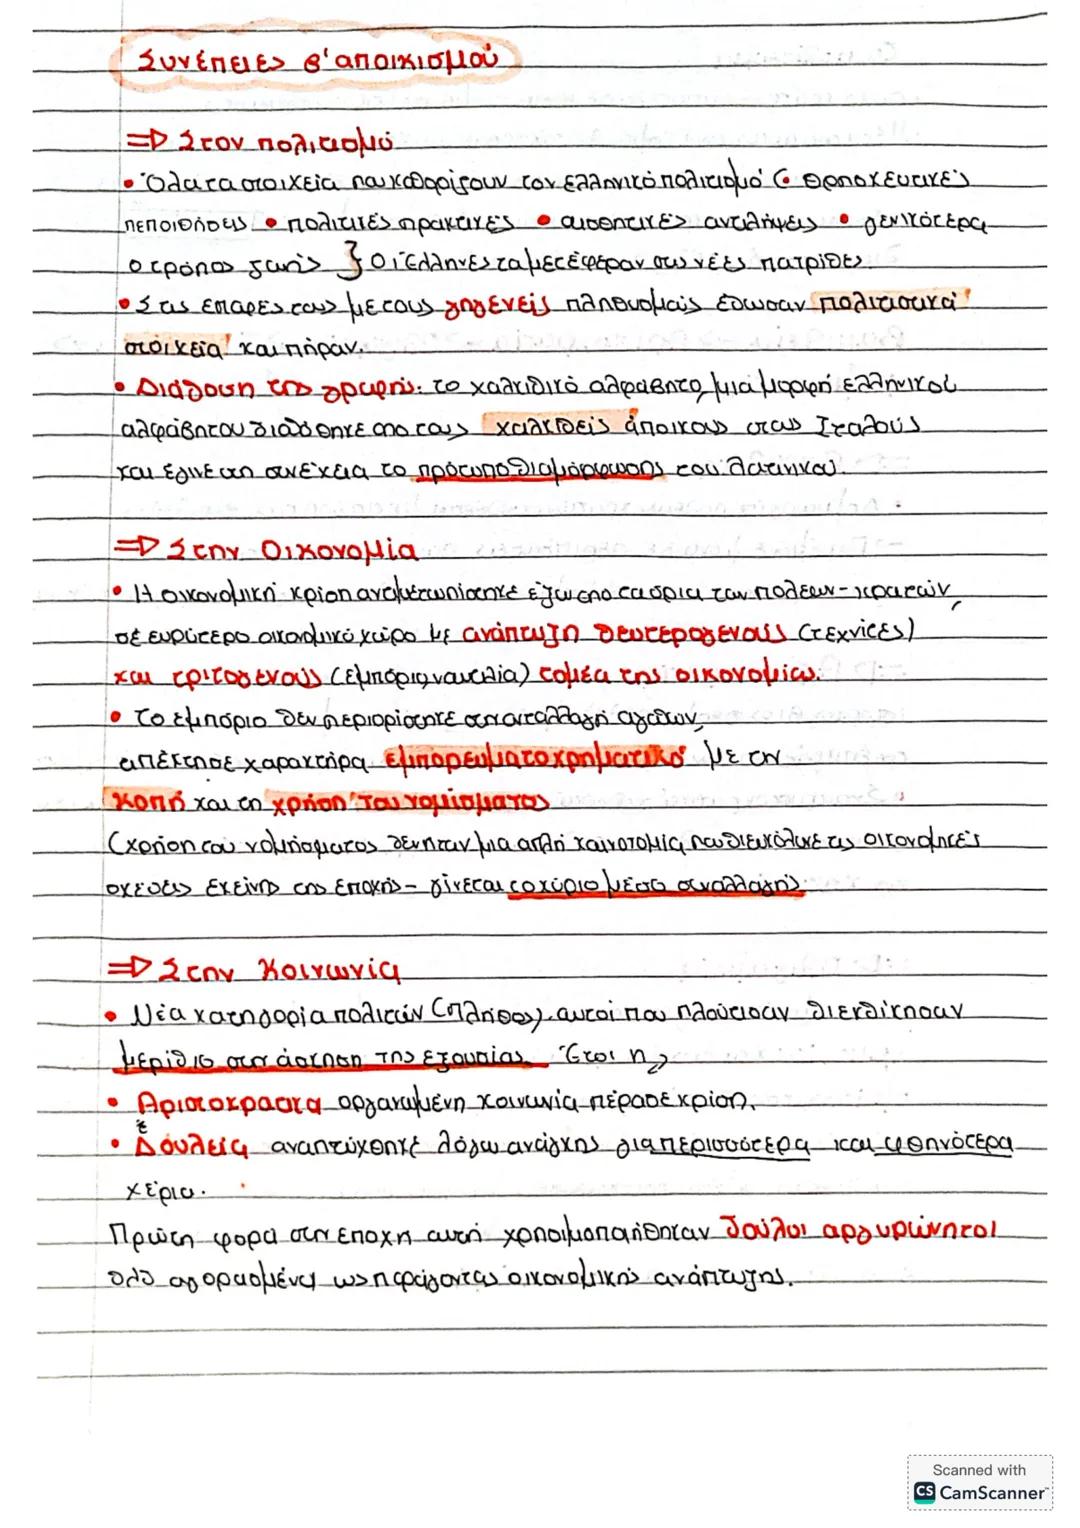 Συνέπειες β' αποικισμού
⇒ Στον πολιτισμό
• Όλα τα στοιχεία που καθορίζουν τον ελληνικό πολιτισμό (• θρησκευτικές
πεποιθήσεις • πολιτικές πρακτικές • αισθητικές αντιλήψεις • γενικότερα
ο τρόπος ζωής } οι Έλληνες τα μετέφεραν στις νέες πατρίδες.
• Στις επαφές τους με τους γηγενείς πληθυσμούς έδωσαν πολιτιστικά
στοιχεία και πήραν.
• Διάδοση της γραφής: το χαλκιδικό αλφάβητο, μια μορφή ελληνικού
αλφάβητου διαδόθηκε από τους χαλκιδείς άποικους στους Ιταλούς
και έγινε στη συνέχεια το πρότυπο διαμόρφωσης του λατινικού.
⇒ Στην Οικονομία
• Η οικονομική κρίση αντιμετωπίστηκε έξω από τα όρια των πόλεων-κρατών,
σε ευρύτερο οικονομικό χώρο με ανάπτυξη δευτερογενούς (τεχνίτες)
και τριτογενούς (εμπόριο, ναυτιλία) τομέα της οικονομίας.
• Το εμπόριο δεν περιορίστηκε στην ανταλλαγή αγαθών,
απέκτησε χαρακτήρα εμπορευματοχρηματικό με την
κοπή και τη χρήση του νομίσματος
(χρήση του νομίσματος δεν ήταν μια απλή καινοτομία που διευκόλυνε τις οικονομικές
σχέσεις εκείνης της εποχής - γίνεται το κύριο μέσο συναλλαγής.
⇒ Στην Κοινωνία
• Νέα κατηγορία πολιτών (πλήθος), αυτοί που πλούτισαν διεκδίκησαν
μερίδιο στην άσκηση της εξουσίας. Έτσι η,
• Αριστοκρατικά οργανωμένη κοινωνία πέρασε κρίση.
• Δουλεία αναπτύχθηκε λόγω ανάγκης για περισσότερα και φθηνότερα
χέρια.
Πρώτη φορά στην εποχή αυτή χρησιμοποιήθηκαν δούλοι αργυρώνητοι
δλδ αγορασμένοι ως παράγοντας οικονομικής ανάπτυξης.
Scanned with
CS CamScanner